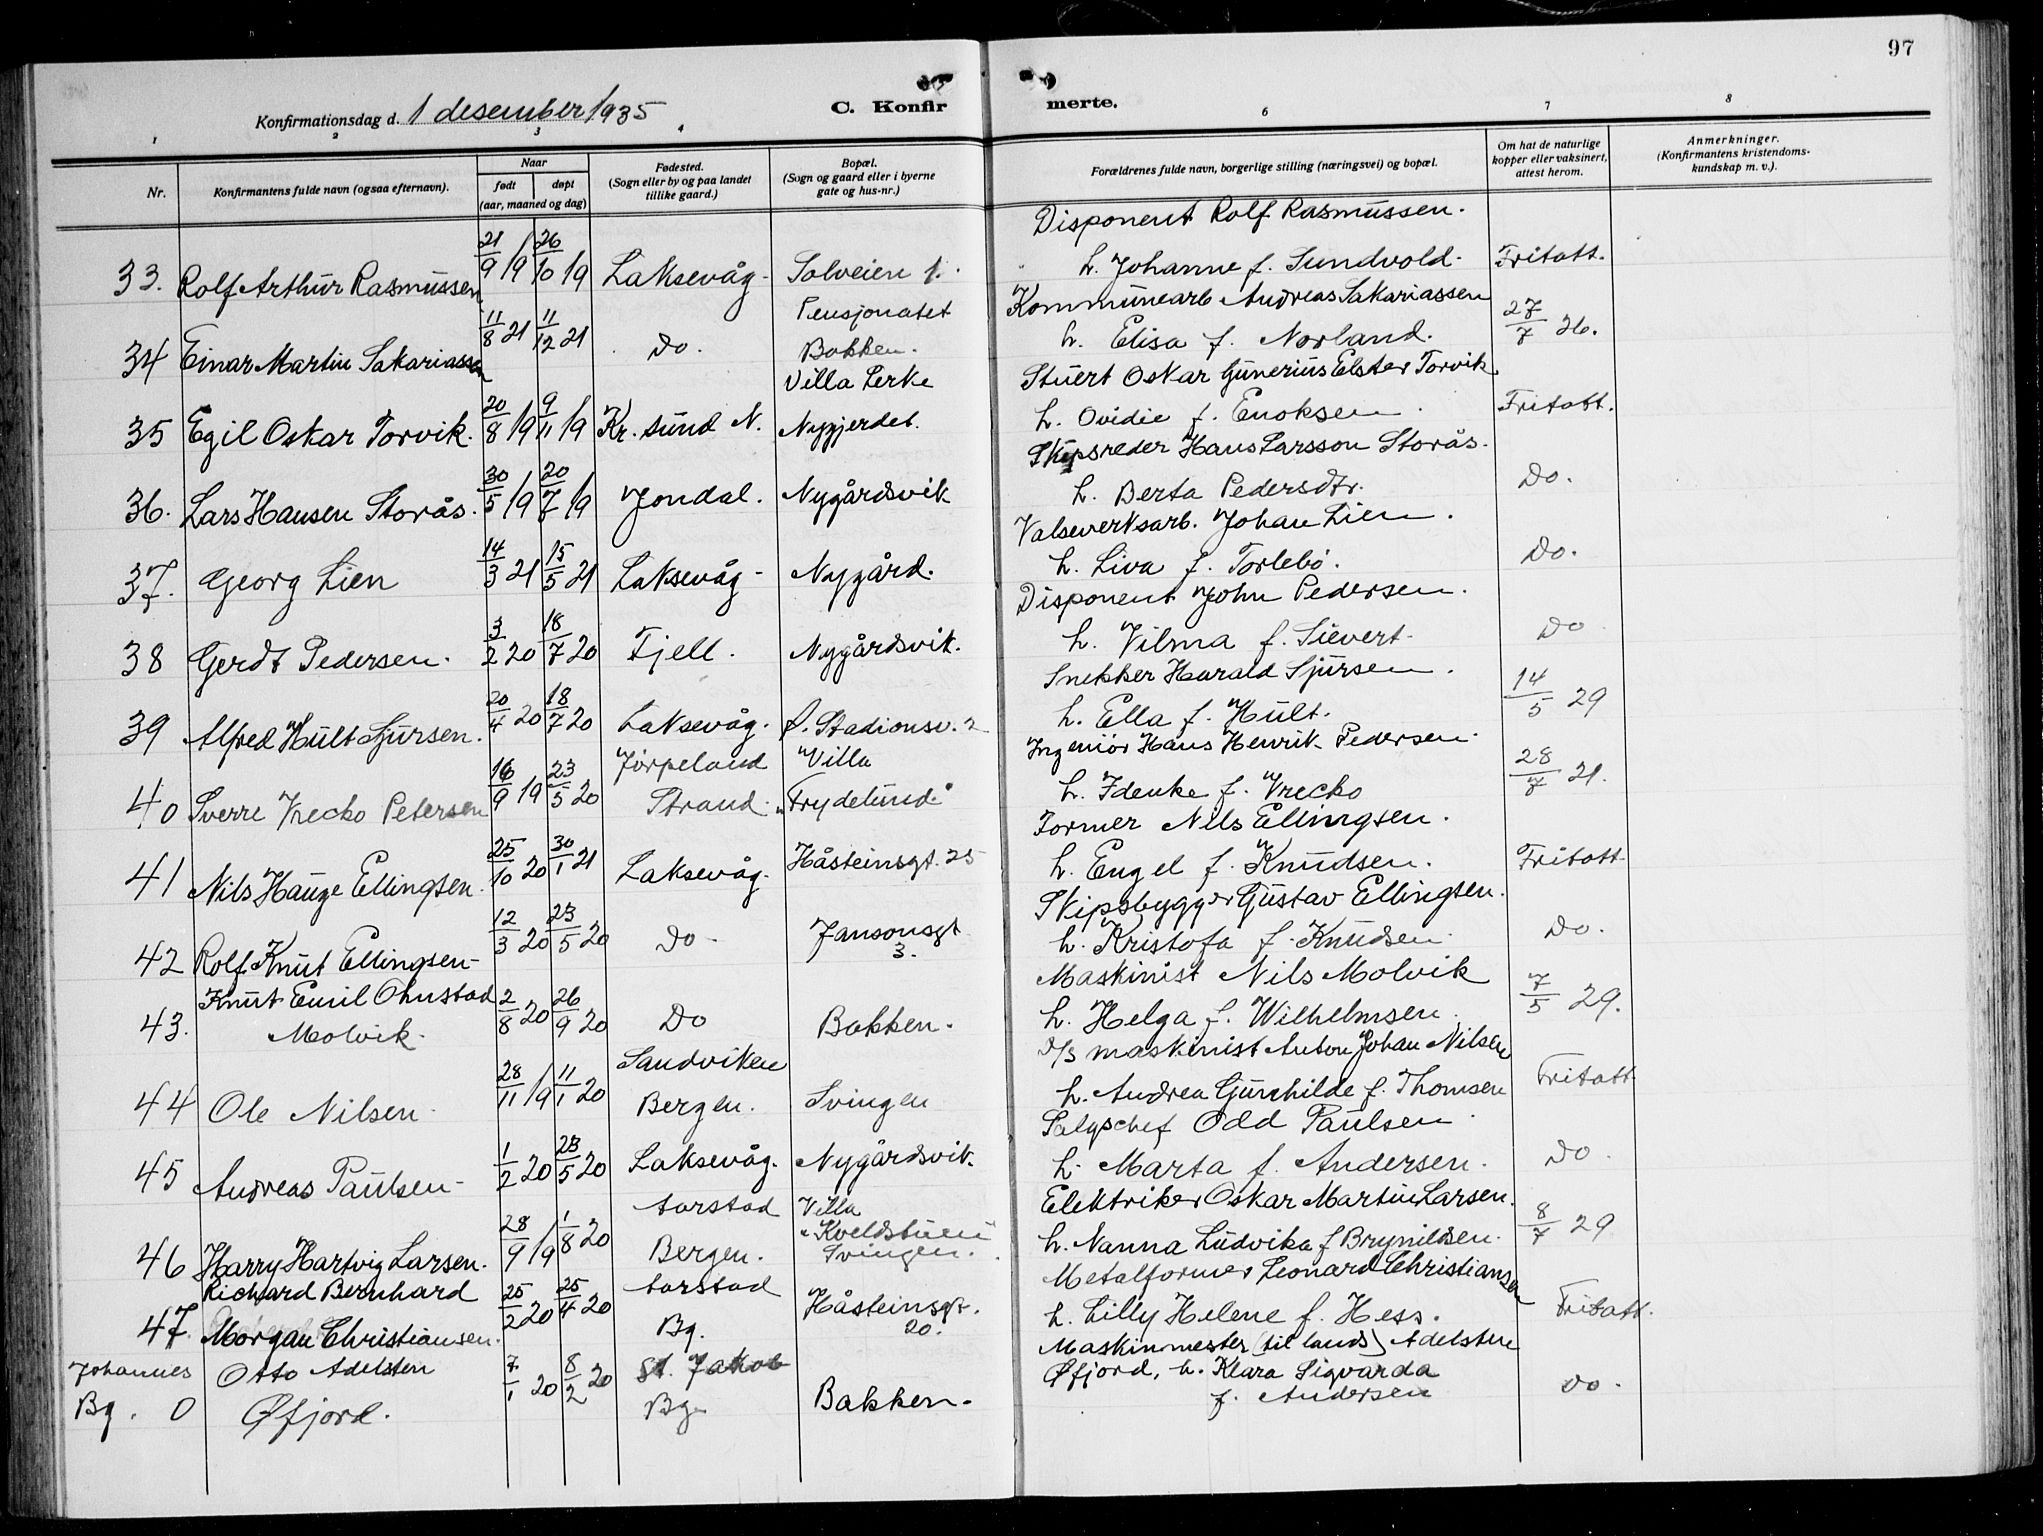 97
Konfirmationsdag d. 1 desember 1935
C. Konfir
merte.
1 2 3 4 6 7 8
Nr.
Konfirmantens fulde navn (ogsaa efternavn).
Naar
født døpt
(aar, maaned og dag)
Fødested.
(Sogn eller by og paa landet
tillike gaard.)
Bopæl.
(Sogn og gaard eller i byerne
gate og hus-nr.)
Forældrenes fulde navn, borgerlige stilling (næringsvei) og bopæl.
Om hat de naturlige
kopper eller vaksinert,
attest herom.
Anmerkninger.
(Konfirmantens kristendoms-
kundskap m. v.).
Disponent Rolf Rasmussen.
33. Rolf Arthur Rasmussen 21/9 19 26/10 19 Laksevåg. Solveien 1. h. Johanne f. Sundvold. Fritatt.
Pensjonatet Kommunearb Andreas Sakariassen
34 Einar Martin Sakariassen 11/8 21 11/12 21 Do. Bakken. h. Elisa f. Norland. 27/7 26.
Villa Lerke Stuert Oskar Gunerius Elster Torvik
35 Egil Oskar Torvik. 20/8 19 9/11 19 Kr. sund N. Nygjerdet. h. Ovidie f. Enoksen. Fritatt.
Skipsreder Hans Larsson Storås.
36. Lars Hansen Storås. 30/5 19 20/7 19 Jondal. Nygårdsvik h. Berta Pedersdtr. Do.
Valseverksarb. Johan Lien.
37. Georg Lien 14/3 21 15/5 21 Laksevåg - Nygård. h. Liva f. Torlebö. Do.
Disponent John Pedersen.
38 Gerdt Pedersen. 3/2 20 18/7 20 Fjell. Nygårdsvik. h. Vilma f. Sievert. Do
Snekker Harald Sjursen.
39 Alfred Hult Sjursen. 20/4 20 18/7 20 Laksevåg. Stadionsv. 2 h. Ella f. Hult. 14/5 29
Jörpeland Villa Ingeniör Hans Henrik Pedersen.
40 Sverre Vrecko Petersen 16/9 19 23/5 20 Strand. „Frydelund." h. Idenke f. Vrecko 28/7 21.
Former Nils Ellingsen.
41 Nils Hauge Ellingsen. 25/10 20 30/1 21 Laksevåg. Håsteinsgt. 25 h. Engel f. Knudsen. Fritatt
Skipsbygger Gustav Ellingsen.
42 Rolf Knut Ellingsen - 12/3 20 23/5 20 Do - Jansonsgt. 3. h. Kristofa f. Knudsen. Do.
Knut Emil Ohnstad Maskinist Nils Molvik
43. Molvik. 2/8 20 26/9 20 Do Bakken. h. Helga f. Wilhelmsen. 7/5 29.
Sandviken D/S maskinist Anton Johan Nilsen
44 Ole Nilsen. 28/11 19 11/1 20 Bergen. Svingen h. Andrea Gunhilde f. Thomsen Fritatt
Salgschef Odd Paulsen
45 Andreas Paulsen - 1/2 20 23/5 20 Laksevåg. Nygårdsvik. h. Marta f. Andersen. Do.
Aarstad Villa Elektriker Oskar Martin Larsen.
46 Harry Hartvig Larsen. 28/9 19 1/8 20 Bergen. „Kveldstuen" Svingen. h. Nanna Ludvika f Brynildsen. 8/7 29
Richard Bernhard Aarstad Metalformer Leonard Christiansen
47. Morgan Christiansen. 25/2 20 25/4 20 Bg. Håsteinsgt. 20. h. Lilly Helene f. Hess. Fritatt.
Maskinmester (til lands) Adelsten
Johannes Otto Adelsten St. Jakob Øfjord, h. Klara Sigvarda
Bg. 0 Øfjord. 7/1 20 8/2 20 Bg. Bakken. f. Andersen Do.